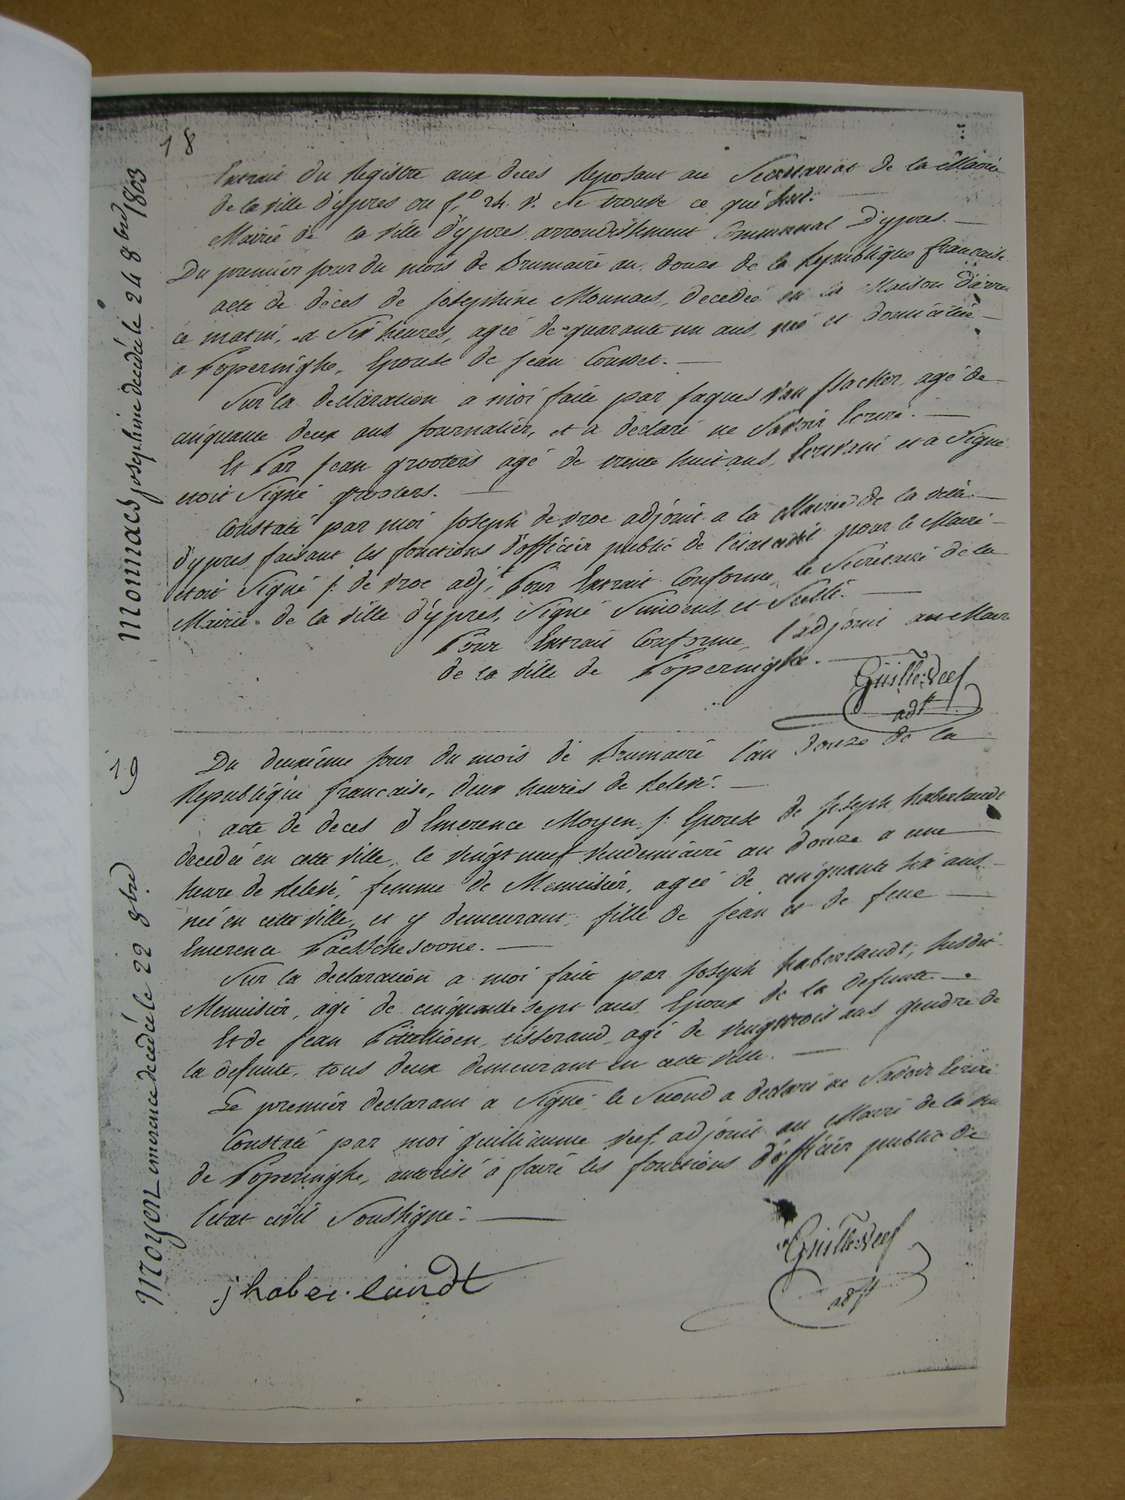 18
Monnaes josephine decédée le 24 8bre 1803
Extrait du Registre aux deces Reposant au Secretariat de la Mairie
de la ville d'ypres ou f.o 24 v. Se trouve ce qui suit.
Mairié de la ville d'ypres arrondissement Communal d'ypres. —
Du premier jour du mois de Brumairé an douze de la Republique francaise
acte de déces de josephine Monnaes, decedeé en la Maison d'arret
ce matin, a Six heures, ageé de quarante un ans, neé et domiciliée —
a Poperinghe, Epouse de jean Couwet. —
Sur la declaration a moi faite par jaques van stacker, agé de
cinquante deux ans journaliér, et a declaré ne Savoir Ecrire. —
Et Par jean grooters agé de trente huit ans, Ecrivani et a Signé
etoit Signé grooters. —
Constaté par moi joseph de vroe adjoint a la Mairie de la ville —
d'ypres faisant les fonctions d'officiér public de l'état civil pour le Mairé —
etoit Signé j. de vroe adj.t Pour Extrait Conforme, le Secretairé de la
Mairie de la ville d'ypres, Signé Smidens et Scellé. —
Pour Extrait Conforme, l'adjoint au Maire
de la ville de Poperinghe. —
Guille Deef
adjt
19
Moyen emerence decédée le 22 8bre
Du deuxiéme jour du mois de Brumairé l'an douze de la
Republiqué francaise, deux heures de Relevé. —
acte de deces d'Emerence Moyen, j: Epouse de joseph haberlandt
decedeé en cette ville, le vingt neuf vendemiairé an douze a une
heure de Relevé, femme de Menuisiér, ageé de cinquante six ans. —
neé en cette ville, et y demeurant, fille de jean et de feue —
Emerence Paesschesoone. —
Sur la declaration a moi faite par joseph haberlandt, Susdit
Menuisiér, agé de cinquante sept ans, Epoux de la defunte. —
Et de jean tisserand, agé de vingt trois ans gendre de
la defunte, tous deux demeurant en cette ville. —
Le premiér declarant a Signé, le Second a declaré ne Savoir Ecrire
Constaté par moi guilliaume deef, adjoint au Mairé de la ville
de Poperinghe, autorisé a fairé les fonctions d'officiér public de
l'etat civil Soussigné. —
j haberlandt
Guille Deef
adjt